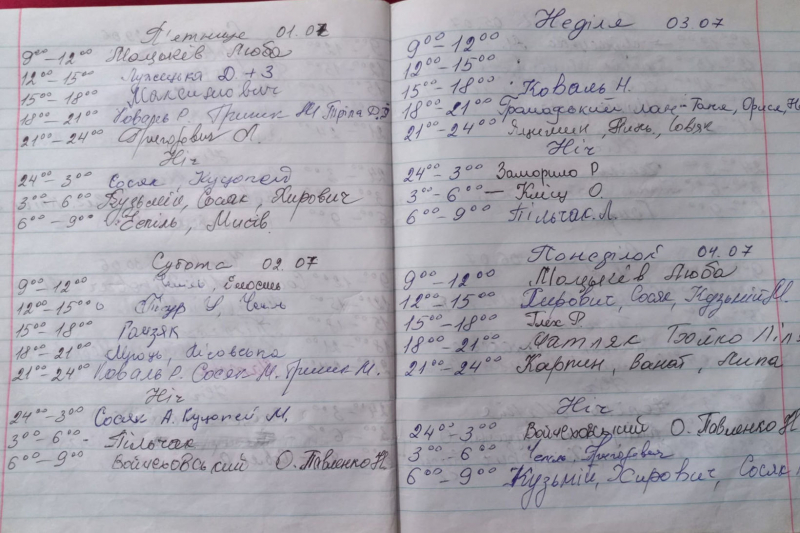 П'ятниця 01.07
9⁰⁰–12⁰⁰ Мацьків Люба
12⁰⁰–15⁰⁰ Лужецька Д + З
15⁰⁰–18⁰⁰ Максимович
18⁰⁰–21⁰⁰ Коваль Р. Гришк М
21⁰⁰–24⁰⁰ Григорович Л.
Ніч
24⁰⁰–3⁰⁰ Сосяк Куцопей
3⁰⁰–6⁰⁰ Кузьмій, Сосяк, Хирович
6⁰⁰–9⁰⁰ Чепіль, Мисів.
Субота 02.07
9⁰⁰–12⁰⁰
12⁰⁰–15⁰⁰
15⁰⁰–18⁰⁰
18⁰⁰–21⁰⁰ Лугоць,
21⁰⁰–24⁰⁰ Коваль Р. Сосяк М. Гришк М.
Ніч
24⁰⁰–3⁰⁰ Сосяк А. Куцопей М.
3⁰⁰–6⁰⁰- Пільчак
6⁰⁰–9⁰⁰ Войчеховський О. Павленко Н
Неділя 03.07
9⁰⁰–12⁰⁰
12⁰⁰–15⁰⁰
15⁰⁰–18⁰⁰ Коваль Н.
18⁰⁰–21⁰⁰ Громадський
21⁰⁰–24⁰⁰ Яцимин,
Ніч
24⁰⁰–3⁰⁰ Заморило Р
3⁰⁰–6⁰⁰– Кміц О.
6⁰⁰–9⁰⁰ Пільчак Л.
Понеділок 04.07
9⁰⁰–12⁰⁰ Мацьків Люба
12⁰⁰–15⁰⁰ Хирович, Сосяк, Кузьмій М.
15⁰⁰–18⁰⁰ Глех Р.
18⁰⁰–21⁰⁰ Матляк Бойко
21⁰⁰–24⁰⁰ Карпин, Ванат, Липа
Ніч
24⁰⁰–3⁰⁰ Войчеховський О. Павленко Н
3⁰⁰–6⁰⁰ Григорович
6⁰⁰–9⁰⁰ Кузьмій, Хирович, Сосяк